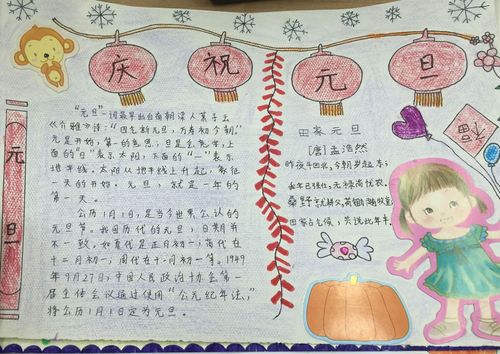 庆祝元旦
元旦
"元旦"一词最早出自南朝梁人萧子云
《介雅》诗："四气新元旦，万寿初今朝"
元是开始，第一的意思，旦是会意字，上
面的"日"表示太阳，下面的"一"表示
地平线。太阳从地平线上升起，象征
一天的开始。元旦，就是一年的
第一天。
公历1月1日，是当今世界公认的
元旦节。我国历代的元旦，日期并
不一致。如夏代是正月初一，商代在
十二月初一，周代在十一月初一等。1949
年9月27日，中国人民政治协会第一
届全体会议通过使用"公元纪年法，"
将公历1月1日定为元旦。
田家元旦
[唐]孟浩然
昨夜斗回北，今朝岁起东；
我年已强仕，无禄尚忧农。
桑野就耕父，荷锄随牧童
田家占气候，共说此年丰。
福